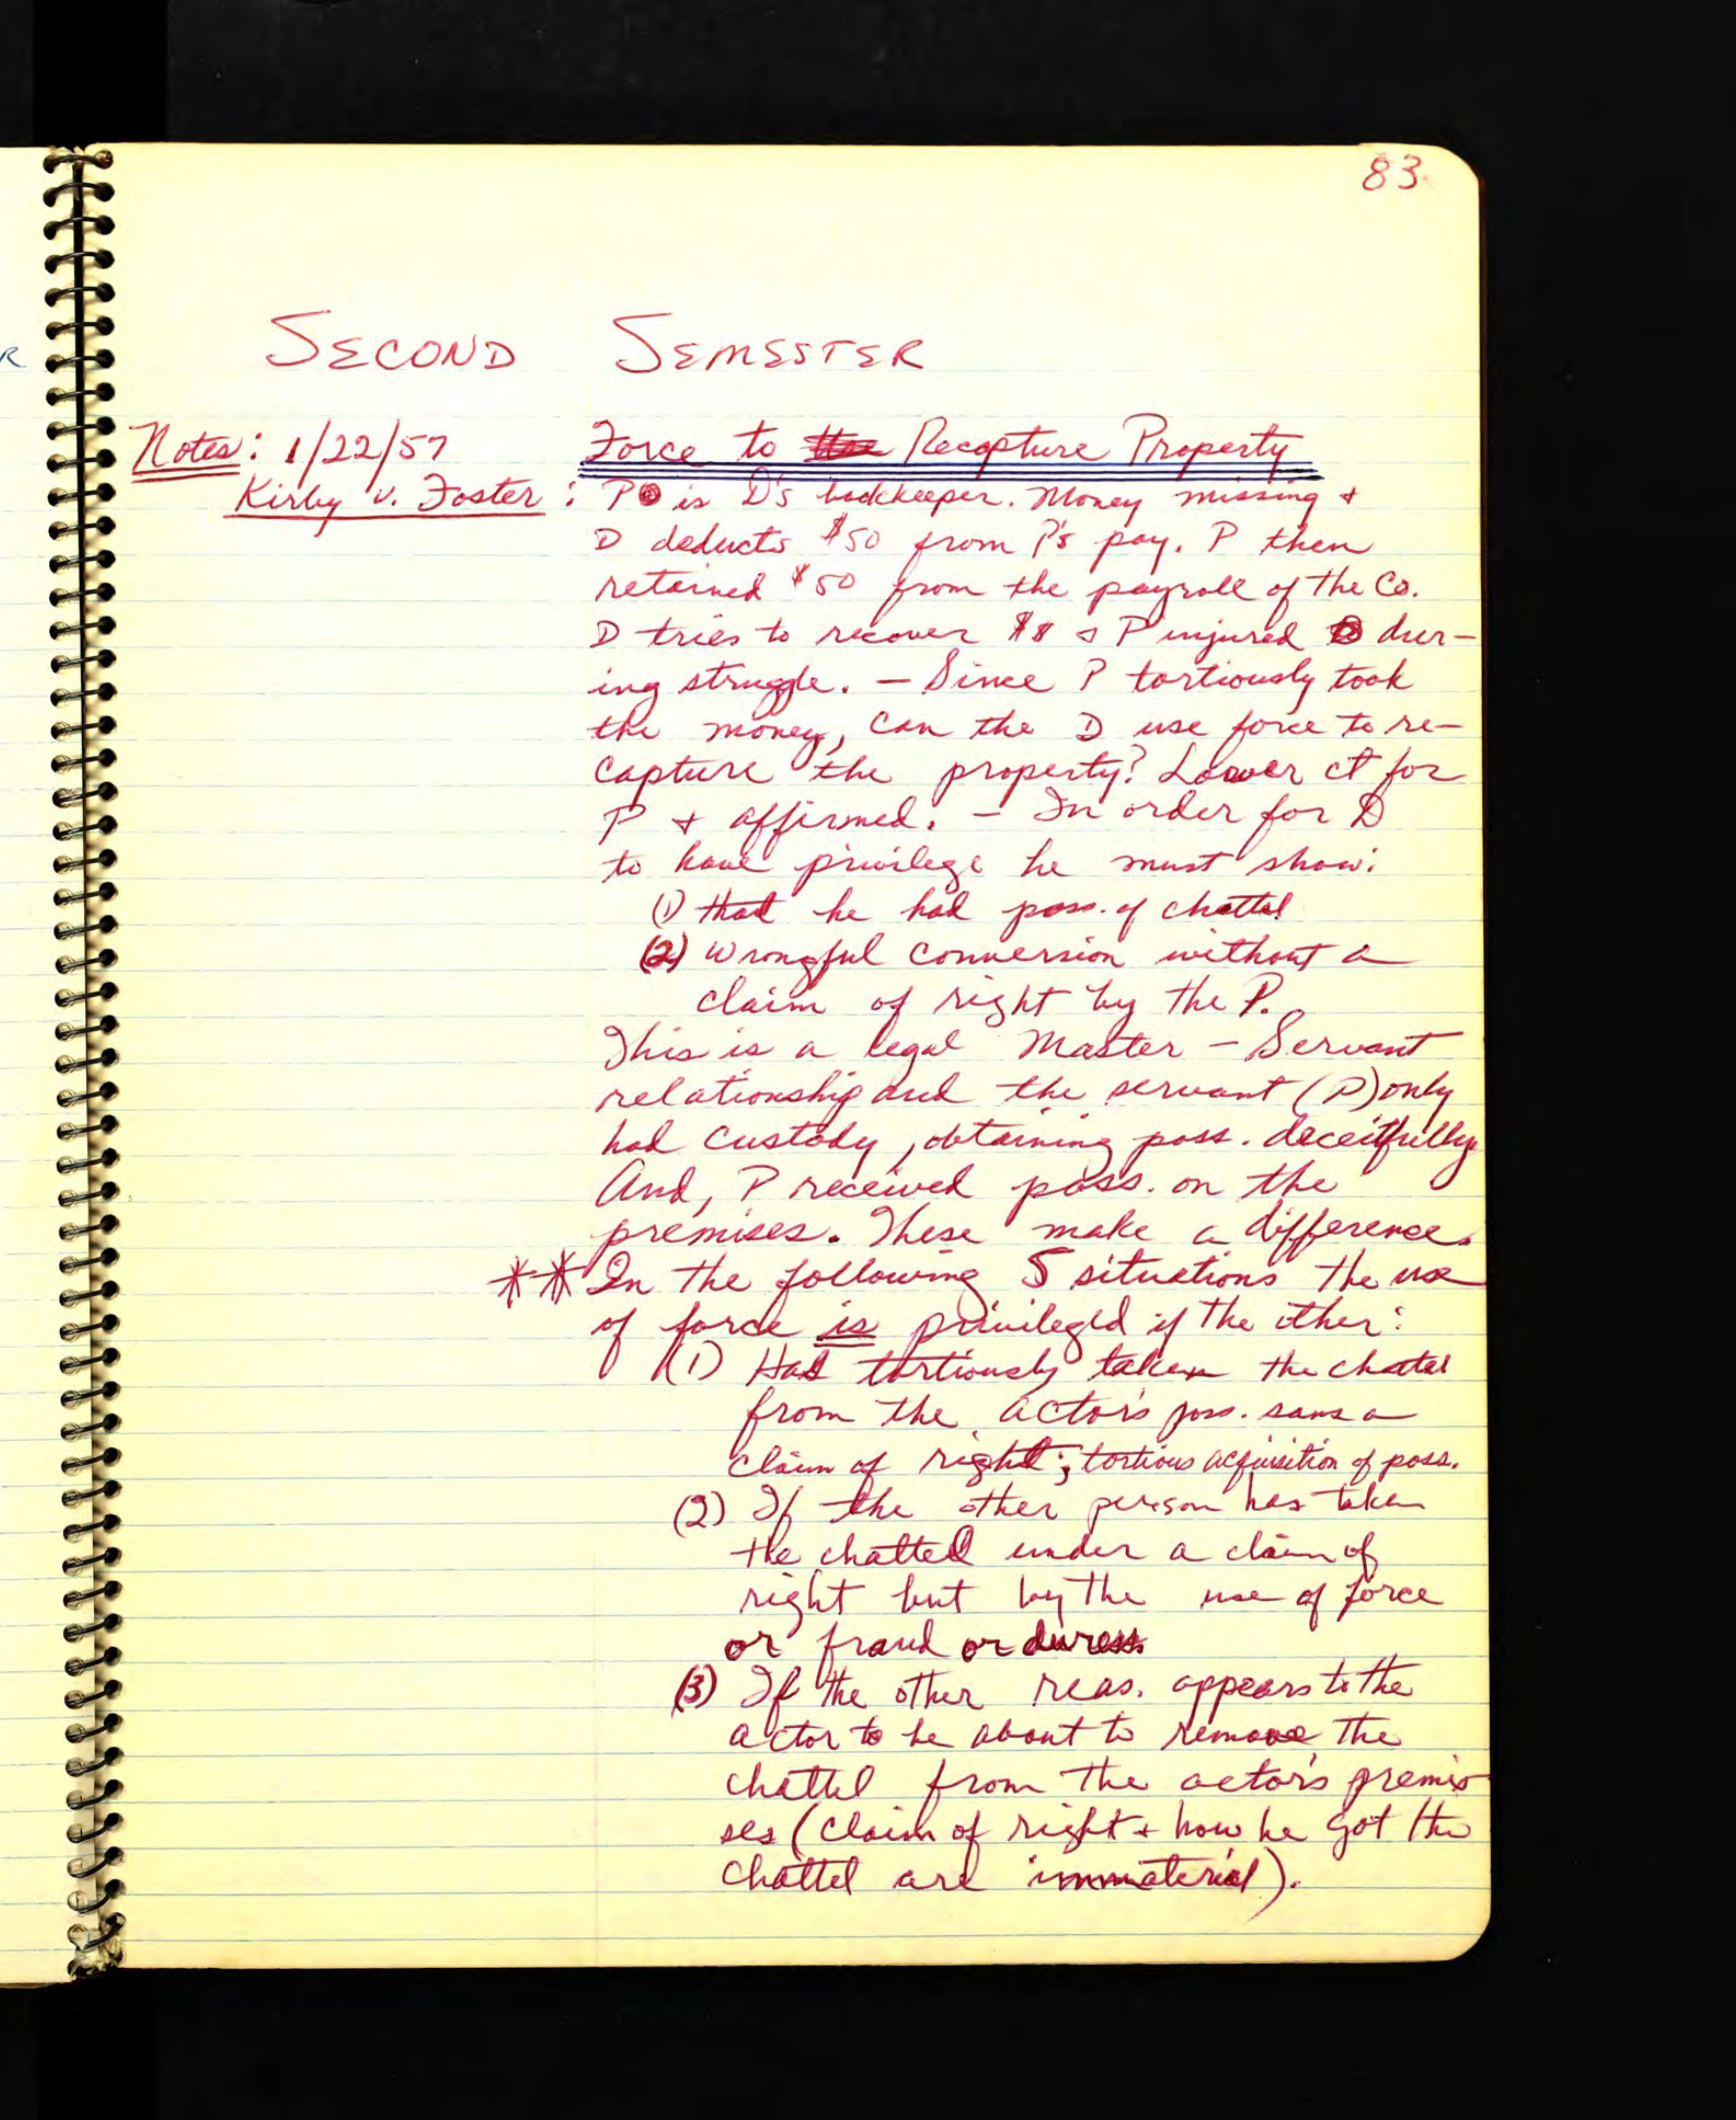 83
R
SECOND SEMESTER
Notes: 1/22/57 Force to Recapture Property
Kirby v. Foster : P is D's bookkeeper. Money missing +
D deducts $50 from P's pay. P then
retained $50 from the payroll of the Co.
D tries to recover $$ + P injured dur-
ing struggle. - Since P tortiously took
the money, can the D use force to re-
capture the property? Lower ct for
P + affirmed. - In order for D
to have privilege he must show:
(1) that he had poss. of chattel
(2) wrongful conversion without a
claim of right by the P.
This is a legal Master - Servant
relationship and the servant (P) only
had custody, obtaining poss. deceitfully.
And, P received poss. on the
premises. These make a difference.
** In the following 5 situations the use
of force is privileged if the other:
(1) Has tortiously taken the chattel
from the actor's poss. sans a
claim of right; tortious acquisition of poss.
(2) If the other person has taken
the chattel under a claim of
right but by the use of force
or fraud or duress
(3) If the other reas. appears to the
actor to be about to remove the
chattel from the actor's premis
ses (claim of right + how he got the
chattel are immaterial).